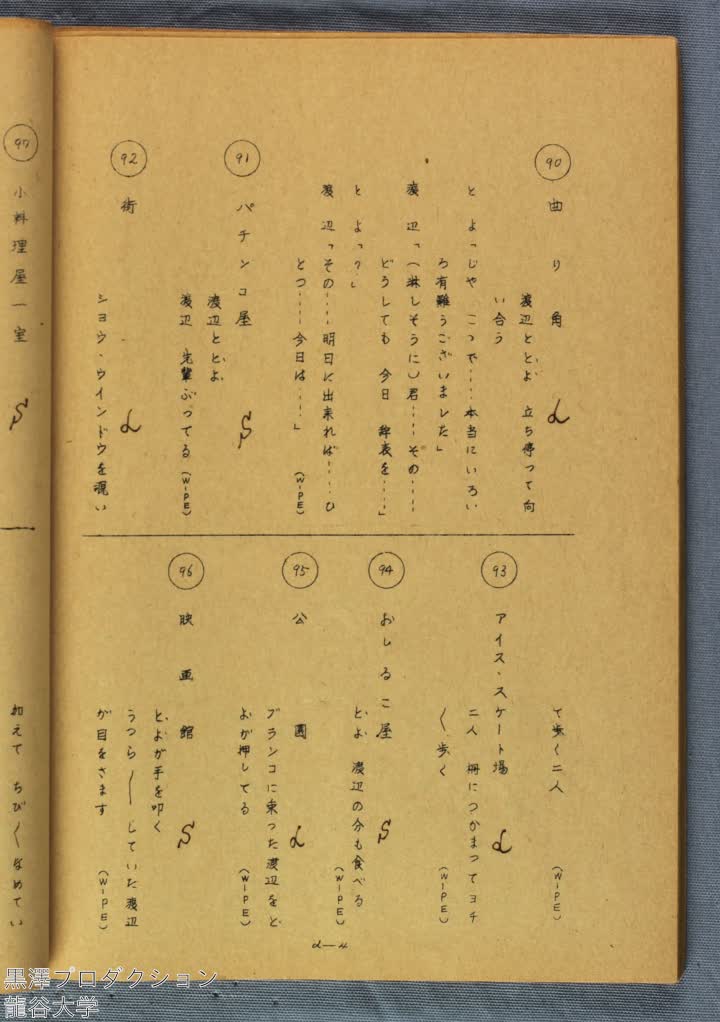 90 曲り角 L
渡辺ととよ 立ち停つて向
い合う
とよ「じや こゝで……本当にいろい
ろ有難うございました」
渡辺「（淋しそうに）君……その……
どうしても 今日 辞表を……」
とよ「？」
渡辺「その……明日に出来れば……ひ
とつ……今日は……」（WIPE）
91 パチンコ屋 S
渡辺ととよ
渡辺 先輩ぶつてる（WIPE）
92 街 L
ショウ・ウインドウを覗い
て歩く二人（WIPE）
93 アイス・スケート場 L
二人 柵につかまつてヨチ
〱歩く（WIPE）
94 おしるこ屋 S
とよ 渡辺の分も食べる
（WIPE）
95 公園 L
ブランコに乗つた渡辺をと
よが押してる（WIPE）
96 映画館 S
とよが手を叩く
うつら〱していた渡辺
が目をさます（WIPE）
d—4
97 小料理屋一室 S
加えて ちび〱なめてい
黒澤プロダクション
龍谷大学